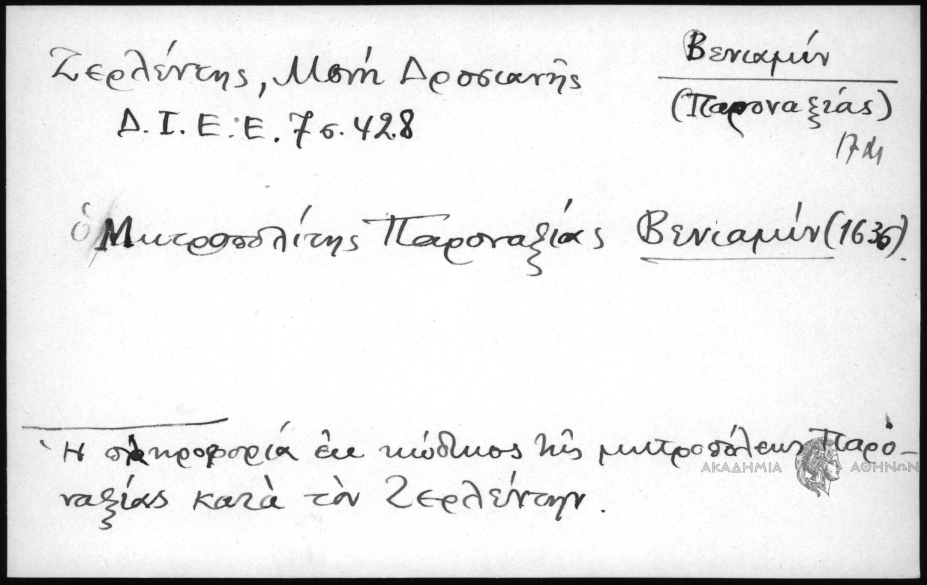 Ζερλέντης, Μονή Δροσιανῆς
Δ.Ι.Ε.Ε. 7 σ. 428
Βενιαμίν
(Παροναξίας)
17
ὁ Μητροπολίτης Παροναξίας Βενιαμίν (1636).
Ἡ πληροφορία ἐκ κώδικος τῆς μητροπόλεως Παρο-
ναξίας κατὰ τὸν Ζερλέντην.
ΑΚΑΔΗΜΙΑ ΑΘΗΝΩΝ